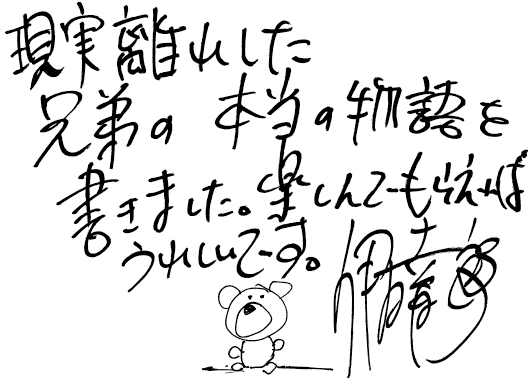 現実離れした
兄弟の 本当の物語を
書きました。楽しんでもらえれば
うれしいです。